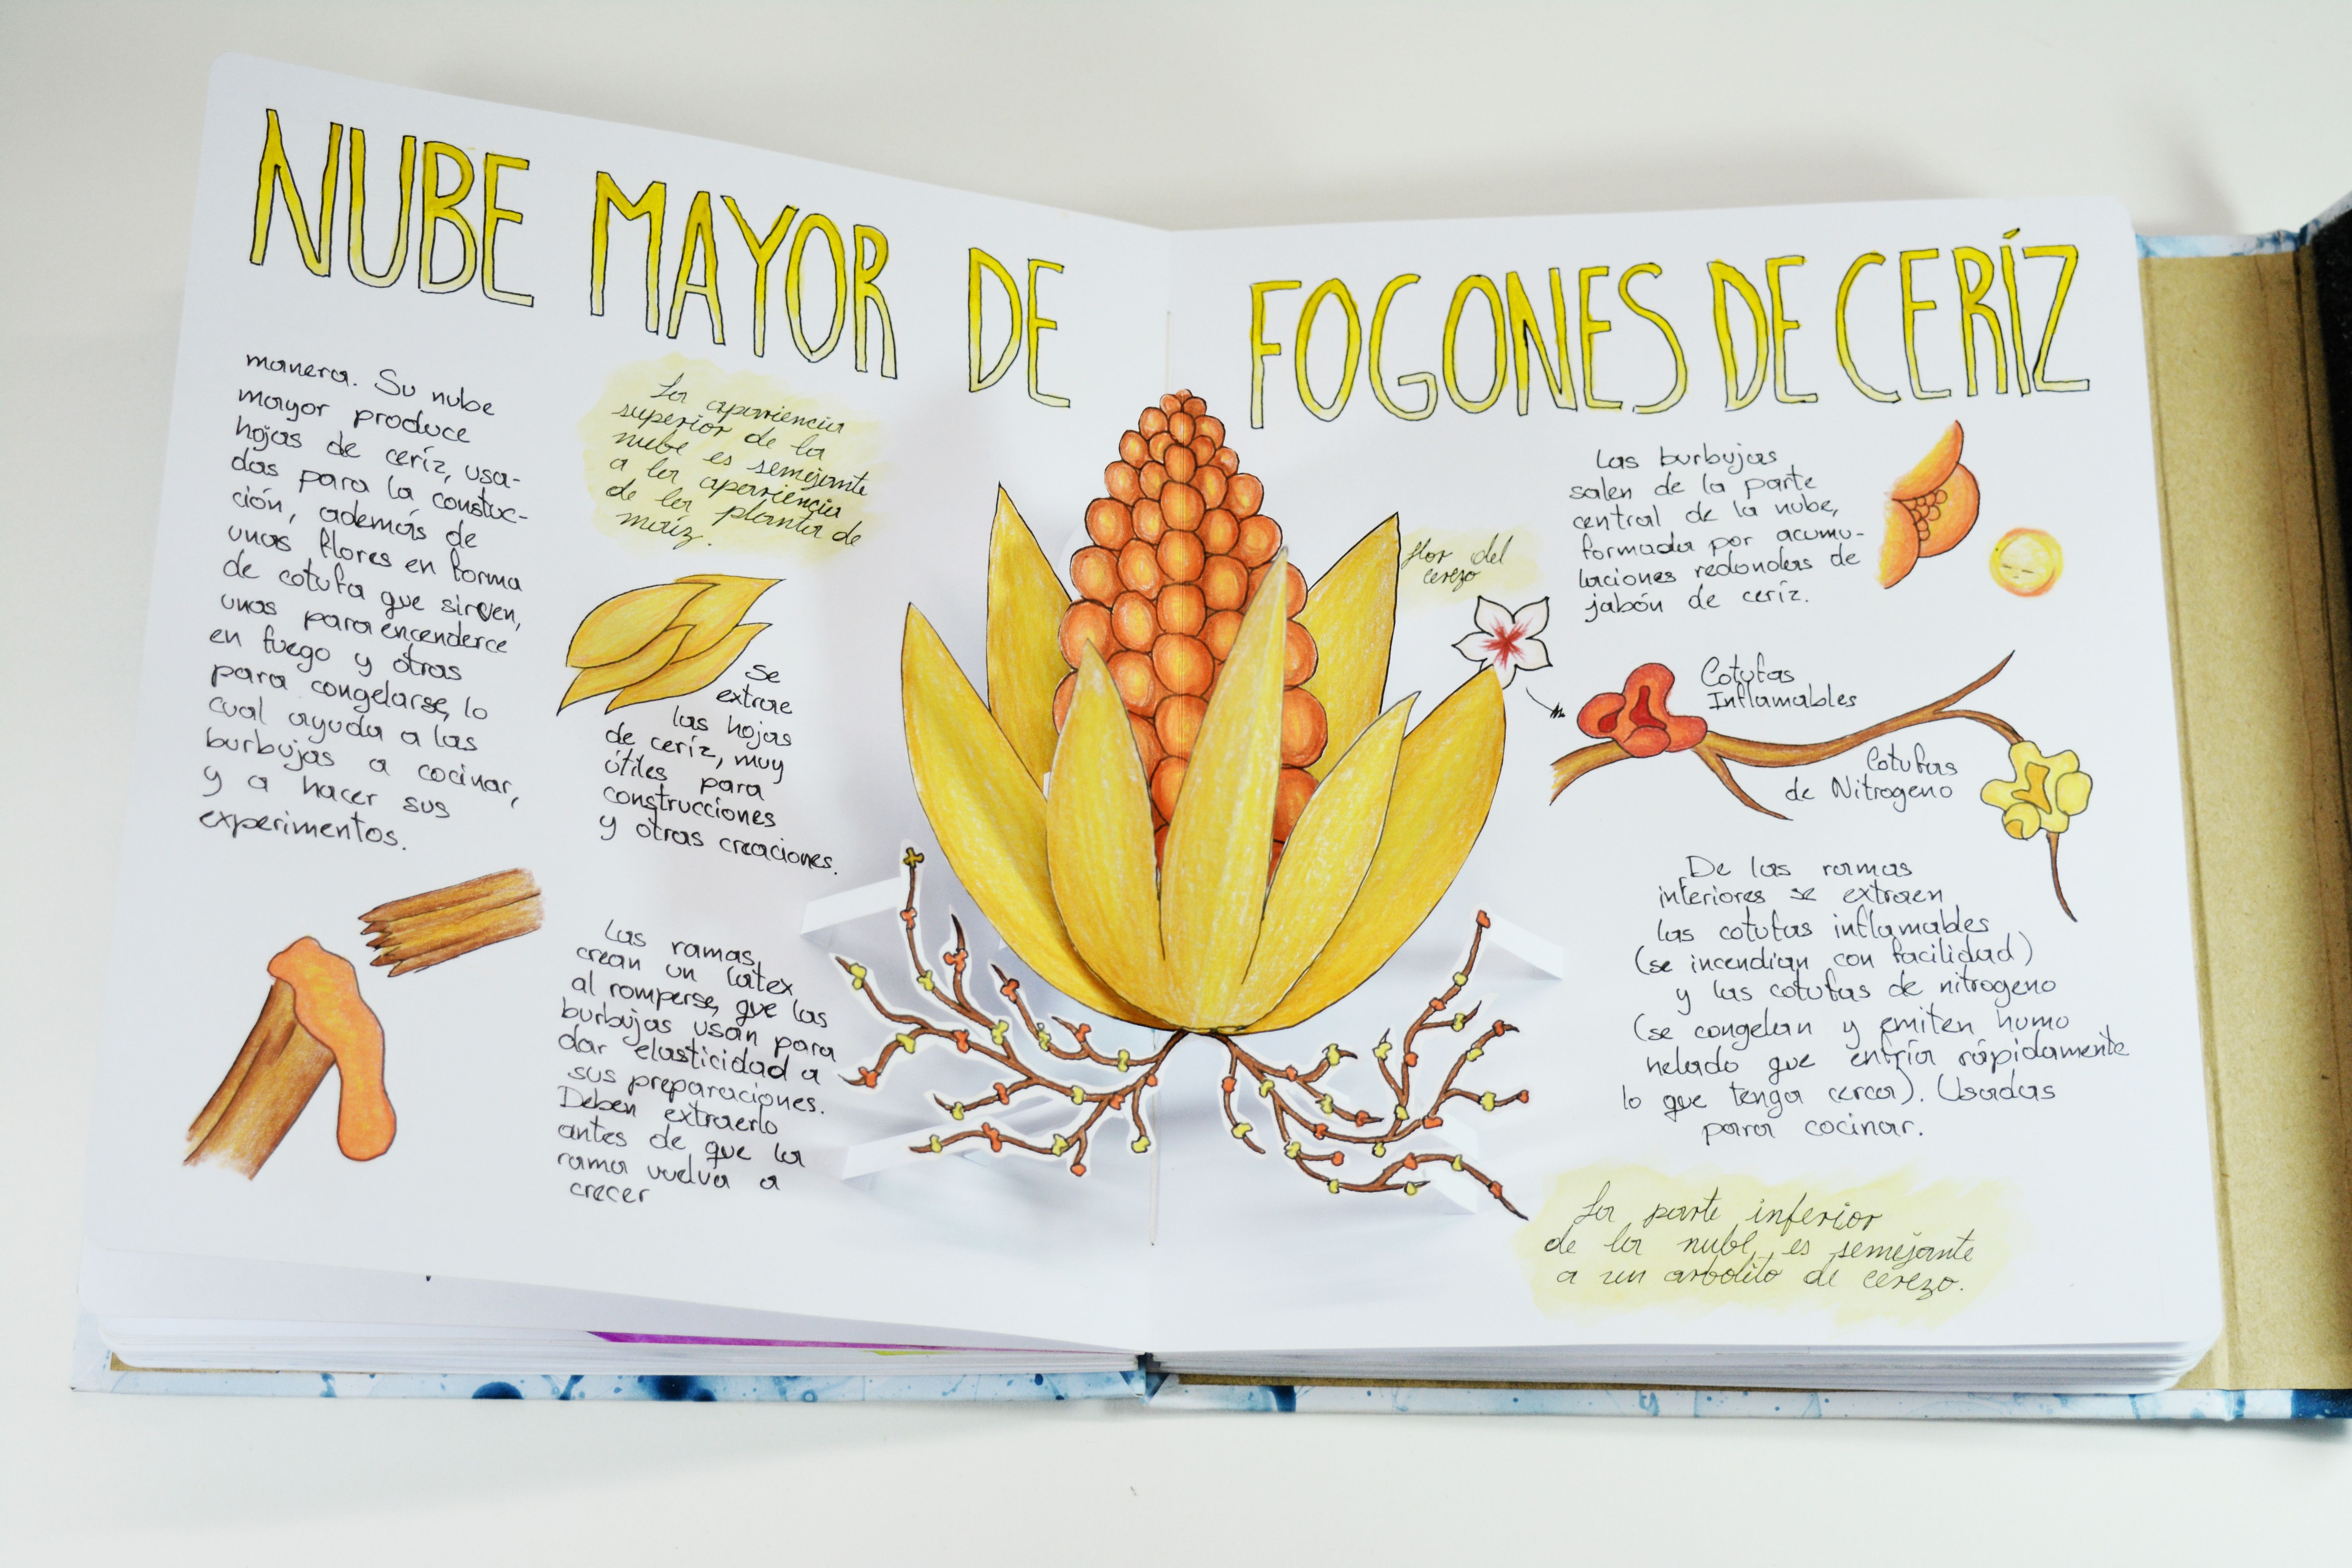 NUBE MAYOR DE FOGONES DE CERÍZ
manera. Su nube
mayor produce
hojas de ceríz, usa-
das para la construc-
ción, además de
unas flores en forma
de cotufa que sirven,
unas para encenderce
en fuego y otras
para congelarse, lo
cual ayuda a las
burbujas a cocinar,
y a hacer sus
experimentos.
La apariencia
superior de la
nube es semejante
a la apariencia
de la planta de
maíz.
Se
extrae
las hojas
de ceríz, muy
útiles para
construcciones
y otras creaciones.
Las ramas
crean un látex
al romperse, que las
burbujas usan para
dar elasticidad a
sus preparaciones.
Deben extraerlo
antes de que la
rama vuelva a
crecer
flor del
cerezo
Las burbujas
salen de la parte
central de la nube,
formada por acumu-
laciones redondas de
jabón de ceríz.
Cotufas
Inflamables
Cotufas
de Nitrogeno
De las ramas
inferiores se extraen
las cotufas inflamables
(se incendian con facilidad)
y las cotufas de nitrogeno
(se congelan y emiten humo
helado que enfría rápidamente
lo que tenga cerca). Usadas
para cocinar.
La parte inferior
de la nube, es semejante
a un arbolito de cerezo.